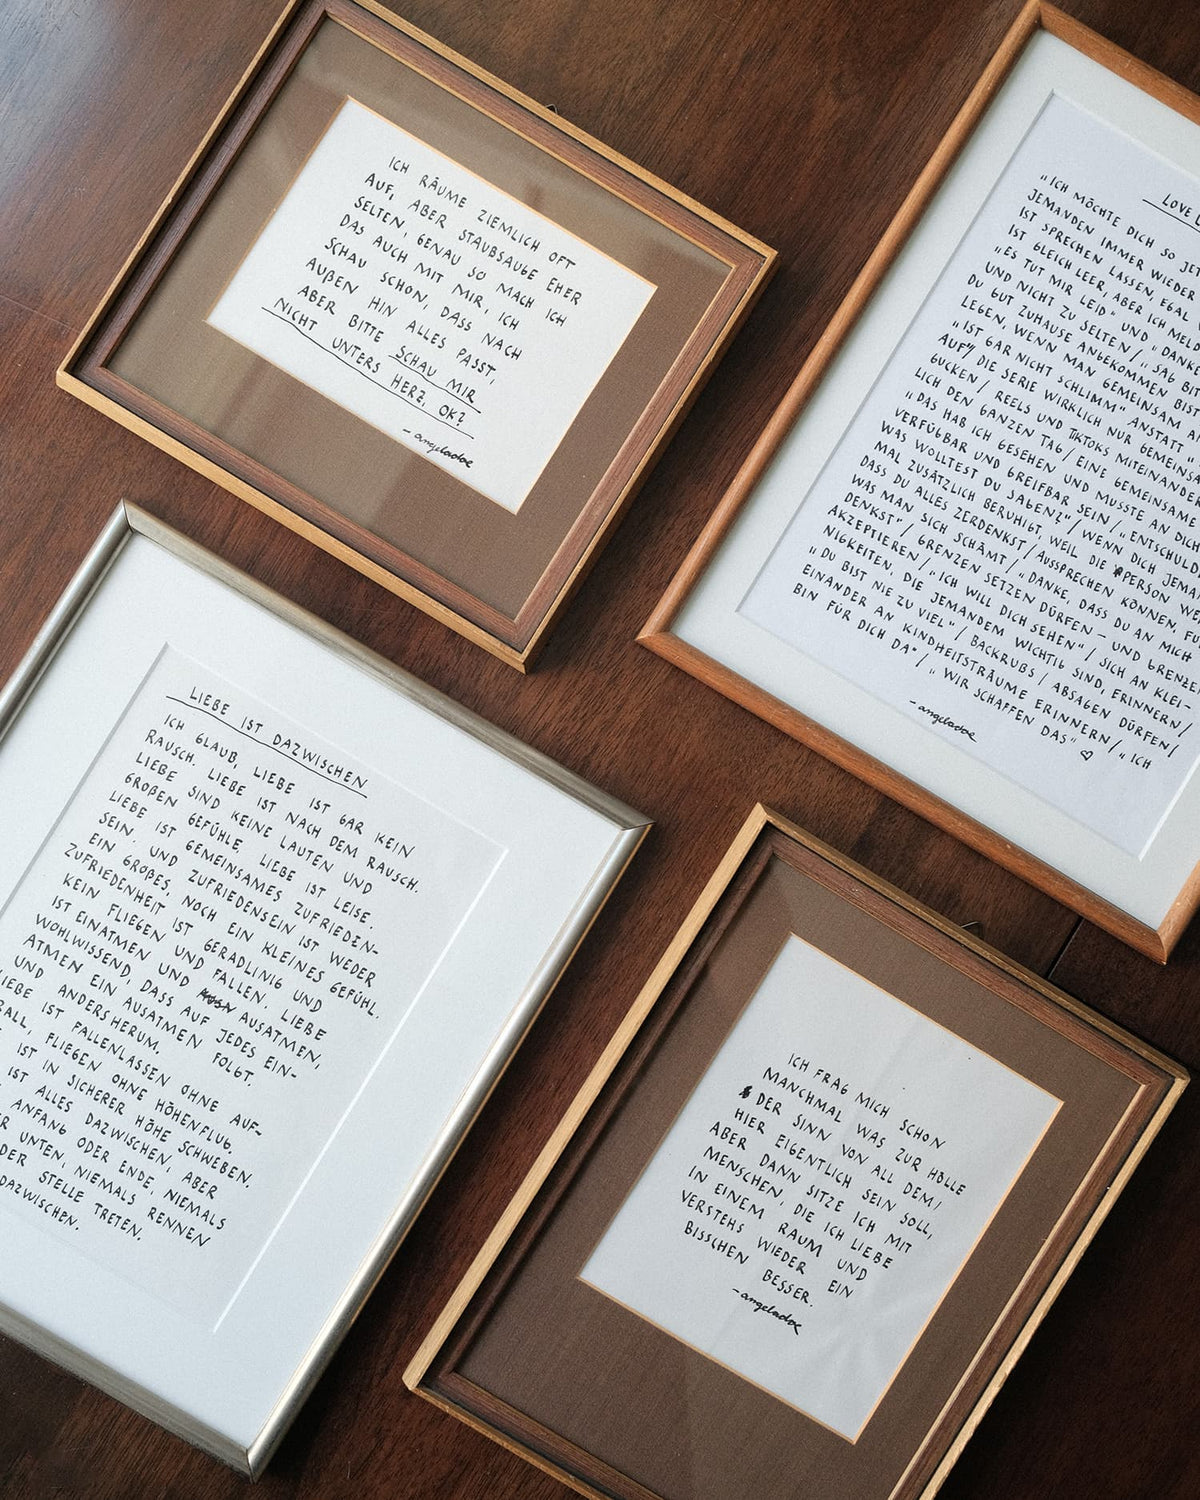 ICH RÄUME ZIEMLICH OFT
AUF, ABER STAUBSAUGE EHER
SELTEN, GENAU SO MACH ICH
DAS AUCH MIT MIR, ICH
SCHAU SCHON, DASS NACH
AUßEN HIN ALLES PASST,
ABER BITTE SCHAU MIR
NICHT UNTERS HERZ, OK?
- angeladoe
LOVE L
"ICH MÖCHTE DICH SO JET
JEMANDEN IMMER WIEDER
IST SPRECHEN LASSEN, EGAL
IST GLEICH LEER, ABER ICH MELD
"ES TUT MIR LEID" UND "DANKE
UND NICHT ZU SELTEN/ "SAG BIT
DU GUT ZUHAUSE ANGEKOMMEN BIST
LEGEN, WENN MAN GEMEINSAM A
"IST GAR NICHT SCHLIMM" ANSTATT "
AUF"/ DIE SERIE WIRKLICH NUR GEMEINSA
GUCKEN/ REELS UND TIKTOKS MITEINANDER
LICH DEN GANZEN TAG/ EINE GEMEINSAME
"DAS HAB ICH GESEHEN UND MUSSTE AN DICH
VERFÜGBAR UND GREIFBAR SEIN/ "ENTSCHULD
WAS WOLLTEST DU SAGEN?"/ WENN DICH JEMA
MAL ZUSÄTZLICH BERUHIGT, WEIL DIE PERSON WE
DASS DU ALLES ZERDENKST/ AUSSPRECHEN KÖNNEN, FÜ
WAS MAN SICH SCHÄMT/ "DANKE, DASS DU AN MICH
DENKST"/ GRENZEN SETZEN DÜRFEN – UND GRENZE
AKZEPTIEREN/ "ICH WILL DICH SEHEN"/ SICH AN KLEI-
NIGKEITEN, DIE JEMANDEM WICHTIG SIND, ERINNERN/
"DU BIST NIE ZU VIEL"/ BACKRUBS/ ABSAGEN DÜRFEN/
EINANDER AN KINDHEITSTRÄUME ERINNERN/ "ICH
BIN FÜR DICH DA"/ "WIR SCHAFFEN DAS" ♡
- angeladoe
LIEBE IST DAZWISCHEN
ICH GLAUB, LIEBE IST GAR KEIN
RAUSCH. LIEBE IST NACH DEM RAUSCH.
LIEBE SIND KEINE LAUTEN UND
GROßEN GEFÜHLE. LIEBE IST LEISE.
LIEBE IST GEMEINSAMES ZUFRIEDEN-
SEIN. UND ZUFRIEDENSEIN IST WEDER
EIN GROßES, NOCH EIN KLEINES GEFÜHL.
ZUFRIEDENHEIT IST GERADLINIG UND
KEIN FLIEGEN UND FALLEN. LIEBE
IST EINATMEN UND AUSATMEN,
WOHLWISSEND, DASS AUF JEDES EIN-
ATMEN EIN AUSATMEN FOLGT.
UND ANDERSHERUM.
LIEBE IST FALLENLASSEN OHNE AUF-
RALL, FLIEGEN OHNE HÖHENFLUG.
IST IN SICHERER HÖHE SCHWEBEN.
IST ALLES DAZWISCHEN, ABER
ANFANG ODER ENDE, NIEMALS
R UNTEN, NIEMALS RENNEN
DER STELLE TRETEN.
DAZWISCHEN.
ICH FRAG MICH SCHON
MANCHMAL WAS ZUR HÖLLE
DER SINN VON ALL DEM,
HIER EIGENTLICH SEIN SOLL,
ABER DANN SITZE ICH MIT
MENSCHEN, DIE ICH LIEBE
IN EINEM RAUM UND
VERSTEHS WIEDER EIN
BISSCHEN BESSER.
- angeladoe